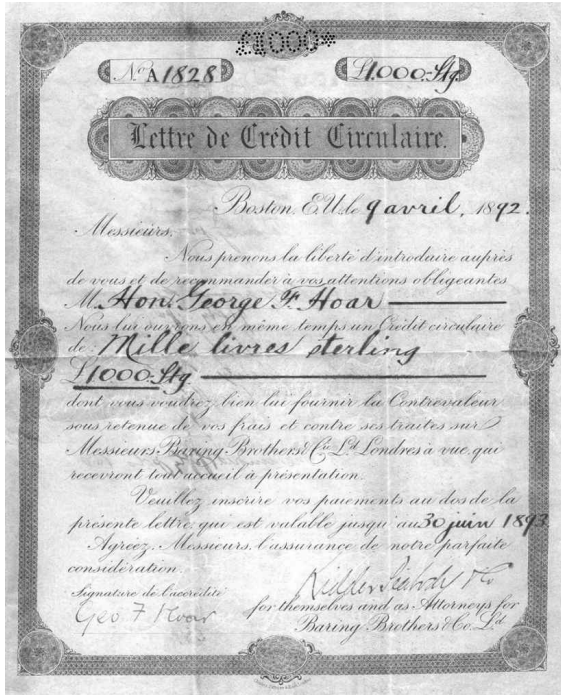 £1000*
No. A1828
£1000-Stg.
Lettre de Crédit Circulaire.
Boston, E.U. le 9 avril, 1892.
Messieurs,
Nous prenons la liberté d'introdaire auprès
de vous et de recommander à vos attentions obligeantes
M. Hon. George F. Hoar
Nous lui ouvrons en même temps un Crédit circulaire
de Mille livres sterling
£1000-Stg.
dont vous voudrez bien lui fournir la Contrevaleur
sous retenue de vos frais et contre ses traites sur
Messieurs Baring Brothers & Cie. Ld. Londres à vue, qui
recevront tout accueil à présentation.
Veuillez inscrire vos paiements au dos de la
présente lettre, qui est valable jusqu'au 30 juin 1893
Agréez, Messieurs, l'assurance de notre parfaite
considération.
Signature de l'accrédité
Geo F Hoar
Kidder Peabody & Co
for themselves and as Attorneys for
Baring Brothers & Co. Ld.